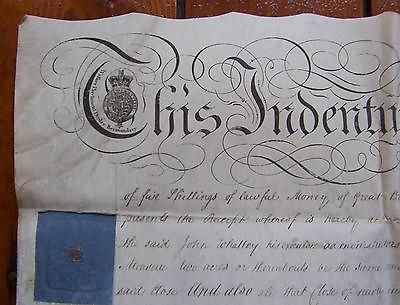 This Indentu
of five Shillings of lawful Money of Great B
presents the Receipt whereof is hereby
the said John Whalley his executors administrators
Messuage two acres or thereabouts be the same
said Close And also all that Close of newly